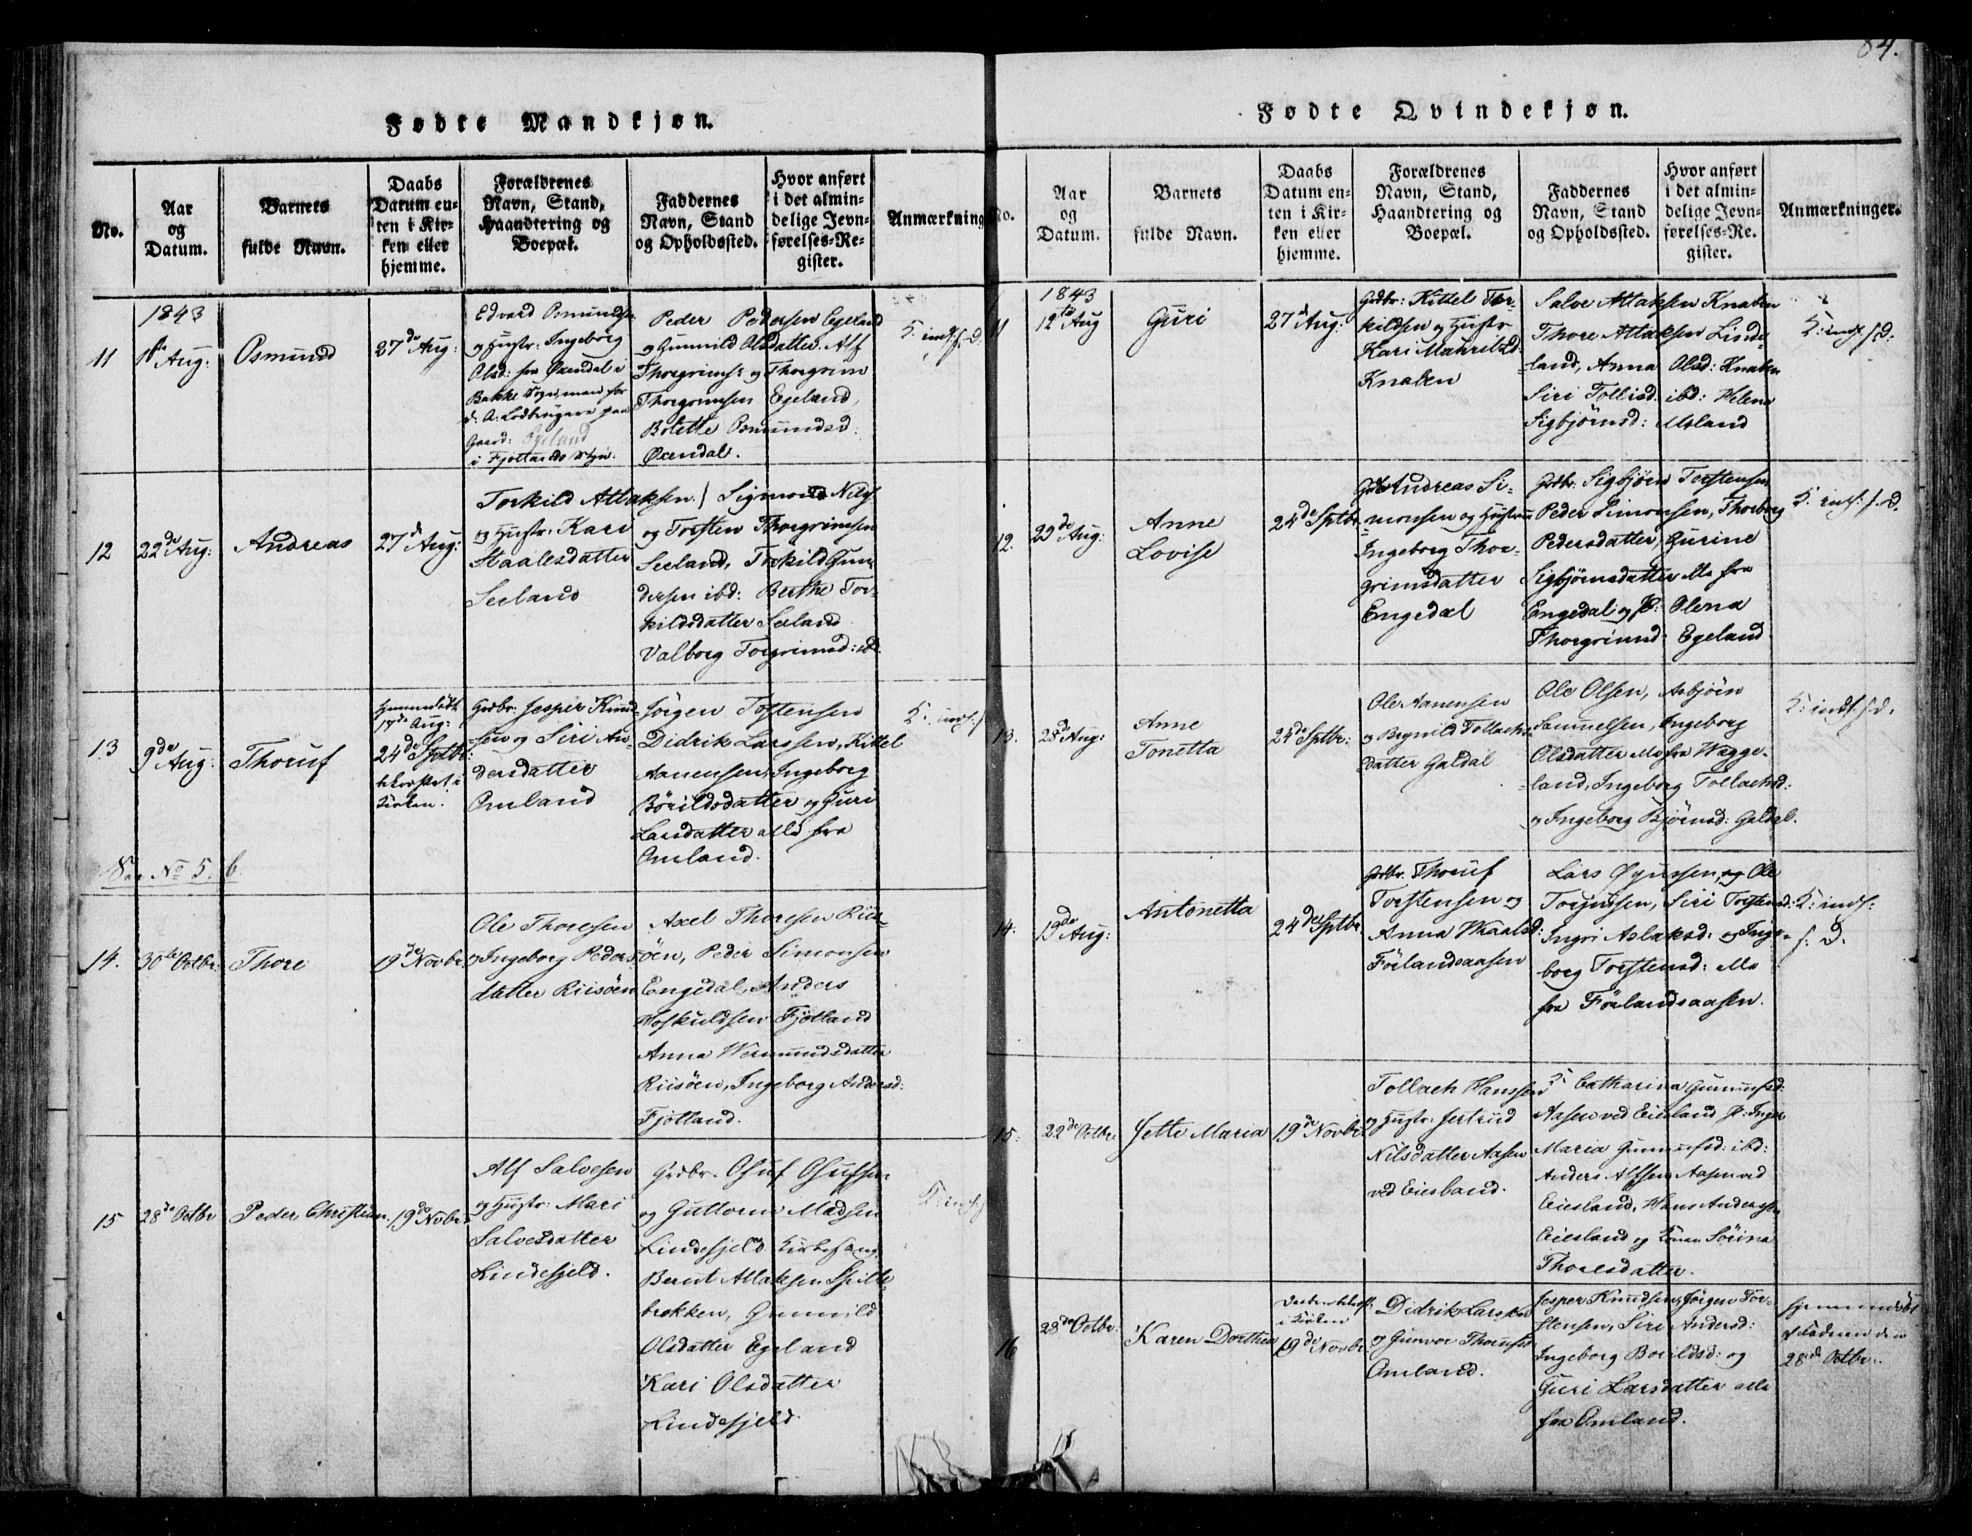 84.
Fødte Mandkjøn.
No.
Aar
og
Datum.
Barnets
fulde Navn.
Daabs
Datum en-
ten i Kir-
ken eller
hjemme.
Forældrenes
Navn, Stand,
Haandtering og
Boepæl.
Faddernes
Navn, Stand
og Opholdssted.
Hvor anført
i det almin-
delige Jevn-
førelses-Re-
gister.
Anmærkning
11
1843
1ste Aug:
Osmund
27de Aug:
Edvard Osmundsen
og Hustr: Ingeborg
Olsd: fra Øxendal i
Bakke Sogn, men for
d. A. Lodbrugere paa
Gaard: Egeland
i Fjotlands Sogn.
Peder Pedersen Egeland
og Gunnild Olsdatter. Alf
Thorgrims: og Thorgrim
Thorgrimsen Egeland,
Bolette Osmundsd:
Øxendal.
K. indf: f. D.
12
22de Aug:
Andreas
27d Aug:
Torkild Atlaksen
og Hustr: Kari
Staalesdatter
Seeland
Sigmord Nils:
og Torsten Thorgrimsen
Seeland, Torkild Gun-
dersen ibd: Berthe Tor-
kildsdatter Seeland
Valborg Torgrimsd: ibd.
13
9de Aug:
Thoruf
Hjemmedøbt
17de Aug:
24de Sptbr:
bekræftet i
Kirken.
Grdbr: Jesper Knud-
sen og Siri An-
dersdatter
Omland
Jørgen Tostensen
Didrik Larssen, Kittel
Aanensen, Ingeborg
Børildsdatter og Guri
Larsdatter alle fra
Omland.
K: indf: f
See No 5. b.
14.
30te Octbr:
Thore
19de Novbr:
Ole Thoresen
og Ingeborg Peders-
datter Riisöen
Axel Thoresen Riis-
öen, Peder Simonsen
Engedal, Anders
Hoskuldsen Fjotland
Anna Wermundsdatter
Riisöen, Ingeborg Andersd:
Fjotland.
15
28de Octbr
Peder Christian.
19de Novbr:
Alf Salvesen
og Hustr: Mari
Salvesdatter
Lindefjeld.
Grdbr. Osuf Osufsen
og Guttorm Madsen
Lindefjeld Kirkesang:
Berut Atlaksen Spille-
brokken, Gunnild
Olsdatter Egeland
Kari Olsdatter
Lindefjeld.
K: indf:
Fødte Qvindekjøn.
No.
Aar
og
Datum.
Barnets
fulde Navn.
Daabs
Datum en-
ten i Kir-
ken eller
hjemme.
Forældrenes
Navn, Stand,
Haandtering og
Boepæl.
Faddernes
Navn, Stand
og Opholdssted.
Hvor anført
i det almin-
delige Jevn-
førelses-Re-
gister.
Anmærkninger.
11
1843
12te Aug
Guri
27d Aug:
Grdbr: Kittel Tor-
kildsen og Hustr
Kari Mahritsd:
Knaben
Salve Atlaksen Knaben
Thore Atlaksen Linde-
land, Anna Olsd: Knaben
Siri Tollisd: ibd: Helene
Sigbjörnsd: Msland
K: indf. f. D.
12.
23de Aug:
Anne
Lovise
24de Sptbr
Grdbr Andreas Si-
monsen og Hustrue
Ingeborg Thor-
grimsdatter
Engedal
Grdbr. Sigbjörn Torstensen
Peder Simonsen, Thorborg
Pedersdatter, Gurine
Sigbjörnsdatter alle fra
Engedal og P: Olena
Thorgrimsd: Egeland.
K. indf: f. D.
13.
23de Aug:
Anne
Tonetta
24de Sptbr:
Ole Aanensen
og Brynild Tollachs-
datter Galdal
Ole Olsen, Asbjörn
Samuelsen, Ingeborg
Olsdatter alle fra Wegge-
land, Ingeborg Tollachsd:
og Ingeborg Bjørnsd: Galdal.
K: indf. f. D.
14.
19de Aug:
Antonetta
24de Sptbr.
Grdbr. Thoruf
Torstensen og
Anna Skaalsd:
Förlandsaasen
Lars Øyussen, og Ole
Torjussen, Siri Torstensd:
Ingri Aslaksd: og Inge-
borg Torstensd: alle
fra Förlandsaasen.
K: indf:
f. D.
15.
22de Octbr:
Jette Maria
19de Novbr.
Tollach Hanssen
og Hustr: Jertrud
Nilsdatter Aasen
ved Eiesland.
K: Catharina Gunnufsd:
Aasen ved Eiesland P: Inger
Maria Gunnufsd: ibd:
Anders Alfsen Aasen ved
Eiesland, Hans Anderssen
Eiesland og Konen Sörina
Thoresdatter.
16
28de Octbr:
Karen Dorthea
i Kirken
19de Novbr
Didrik Larssen
og Gunvor Thorufsd:
Omland.
Jesper Knudsen, Jørgen Tor-
stensen, Siri Andersd:
Ingeborg Borildsd: og
Guri Larsdatter alle
fra Omland.
Hjemmedøbt
af Faderen den
28de Octbr: